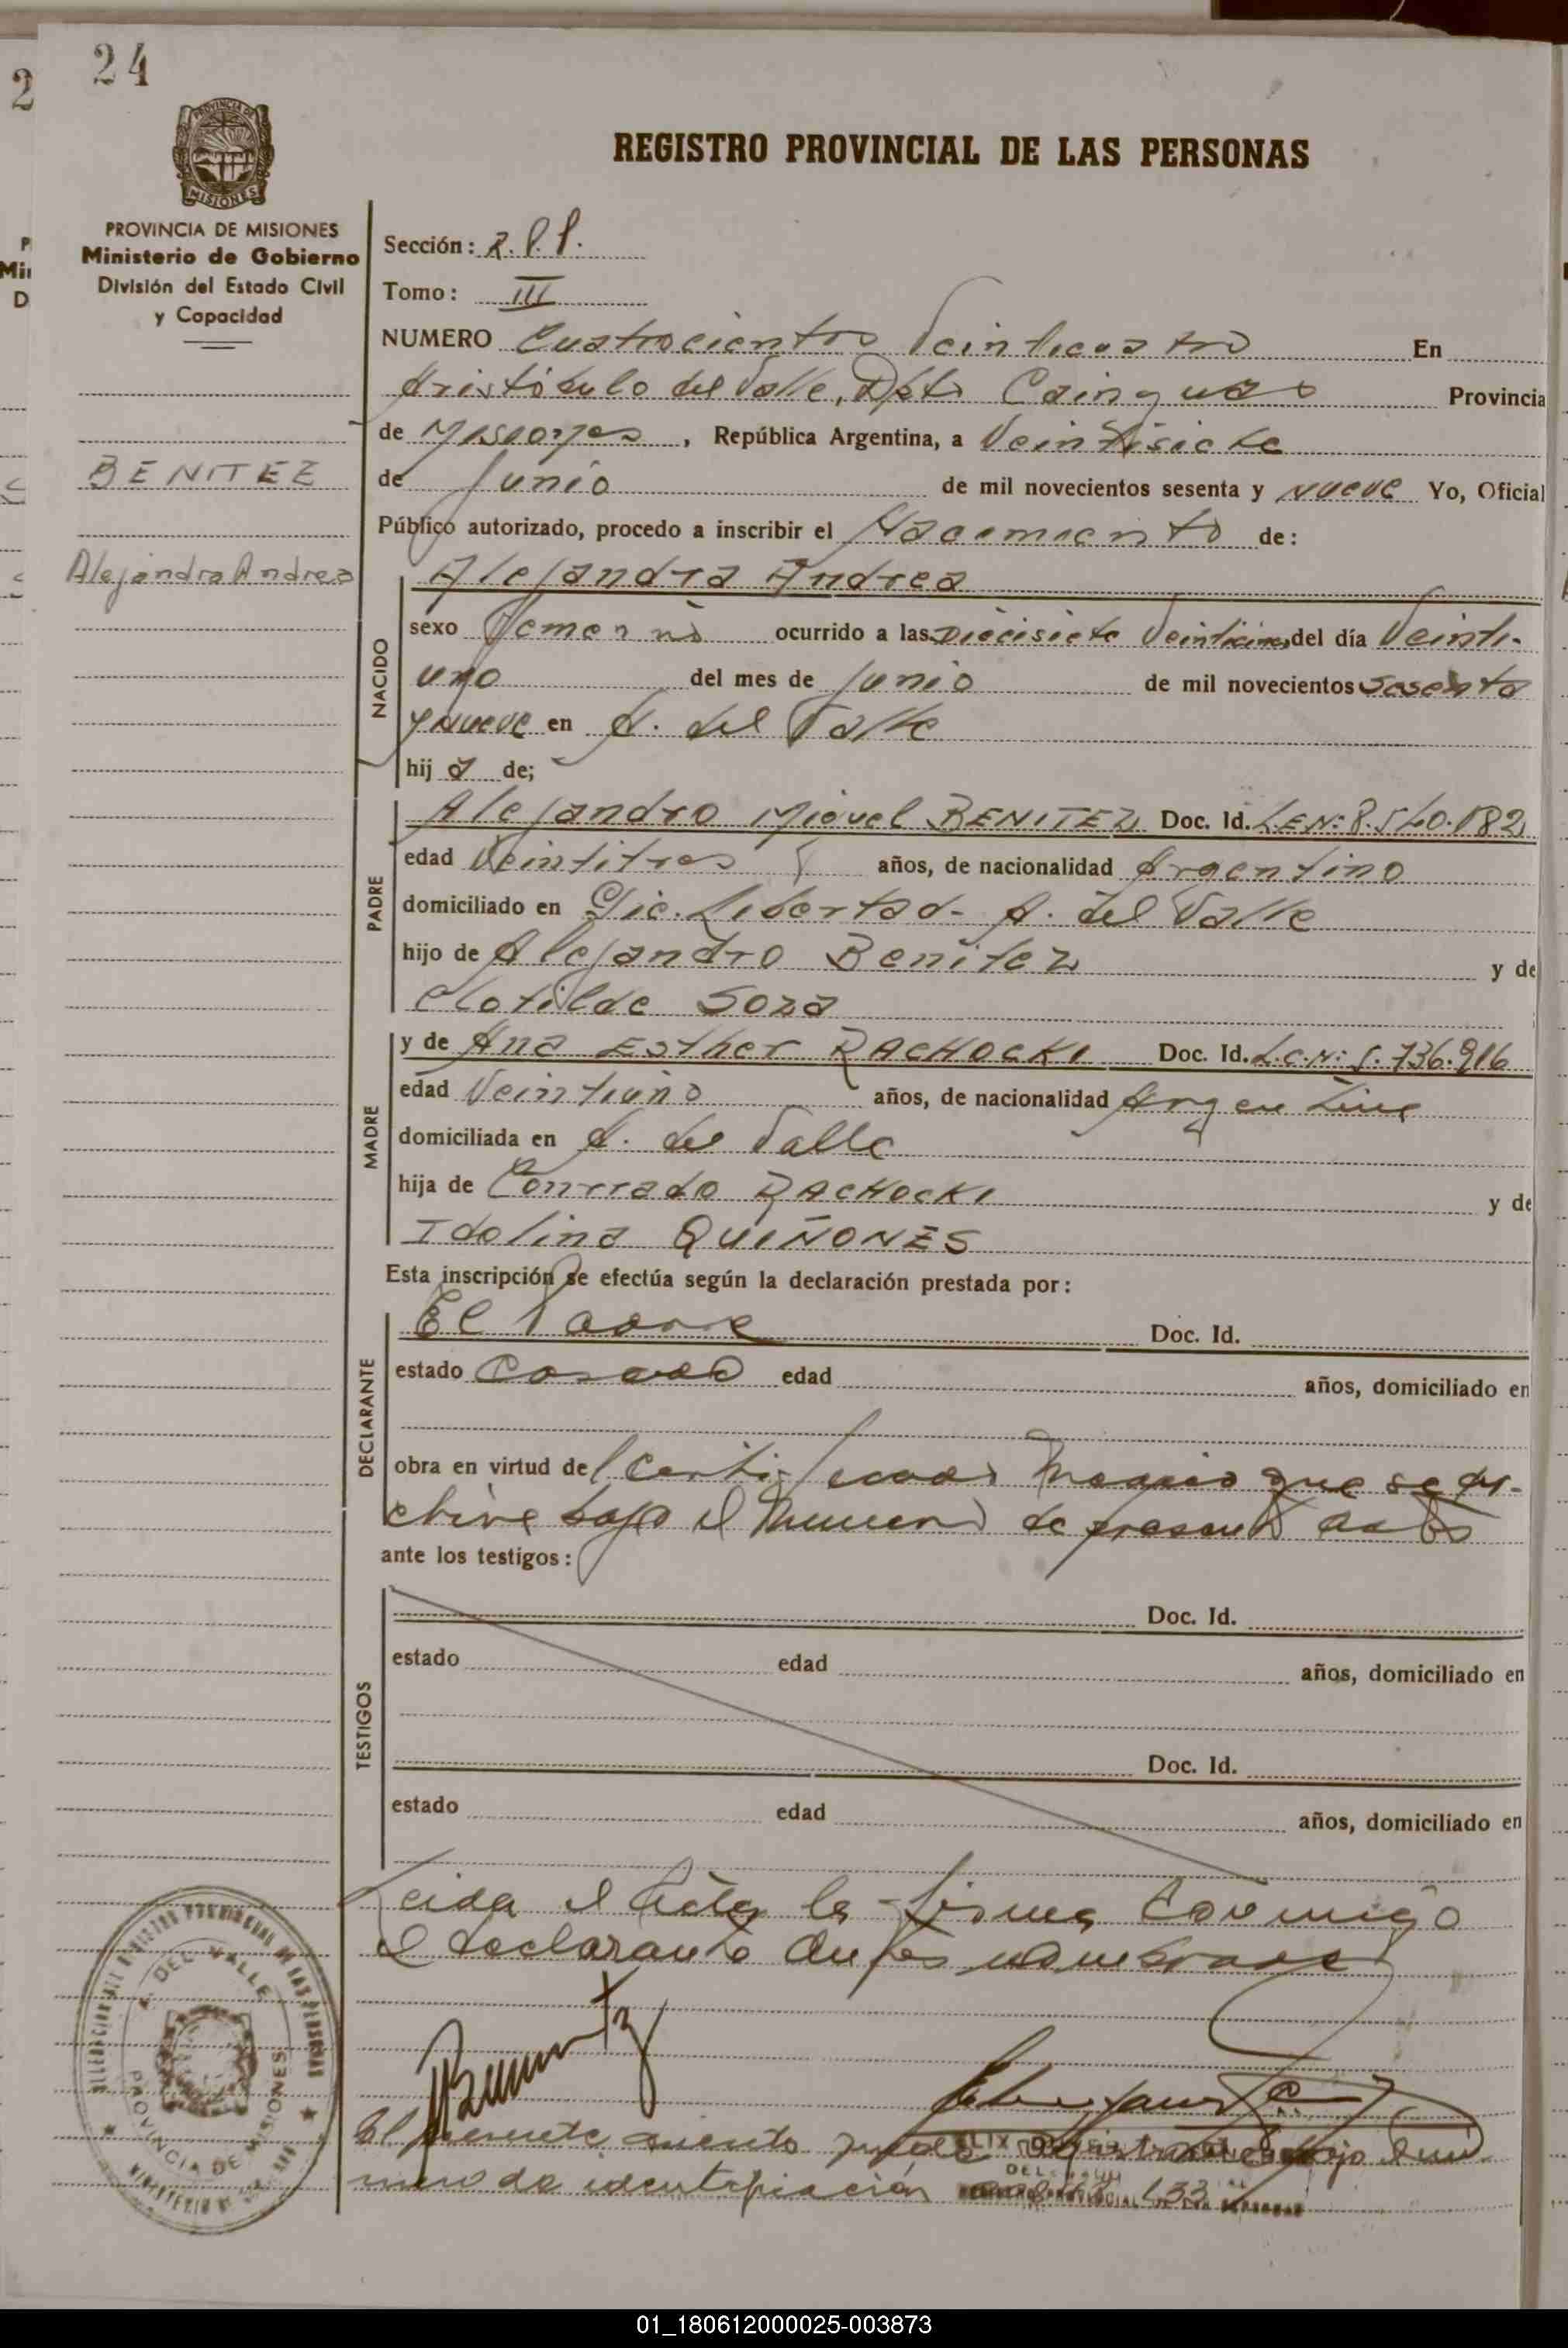 24
REGISTRO PROVINCIAL DE LAS PERSONAS
PROVINCIA DE MISIONES
Ministerio de Gobierno
División del Estado Civil
y Capacidad
BENITEZ
Alejandra Andrea
Sección: R.P.P.
Tomo: III
NUMERO Cuatrocientos Veinticuatro En
Aristóbulo del Valle, Dpto Cainguas Provincia
de Misiones, República Argentina, a Veintisiete
de Junio de mil novecientos sesenta y nueve Yo, Oficial
Público autorizado, procedo a inscribir el Nacimiento de:
NACIDO
Alejandra Andrea
sexo Femenino ocurrido a las Diecisiete Veinticinco del día Veinti-
uno del mes de Junio de mil novecientos sesenta
y nueve en A. del Valle
hij a de;
PADRE
Alejandro Miguel BENITEZ Doc. Id. L.E.N: 8.540.182
edad Veintitres años, de nacionalidad Argentino
domiciliado en Pic. Libertad - A. del Valle
hijo de Alejandro Benitez y de
Clotilde Soza
MADRE
y de Ana Esther RACHOCKI Doc. Id. L.C.N: 5.736.916
edad Veintiuno años, de nacionalidad Argentina
domiciliada en A. del Valle
hija de Conrrado RACHOCKI y de
Idolina QUIÑONES
Esta inscripción se efectúa según la declaración prestada por:
DECLARANTE
El Padre Doc. Id.
estado Casado edad años, domiciliado en
obra en virtud de l Certificado que se ar-
chiva bajo el Numero de presente acta
ante los testigos:
TESTIGOS
Doc. Id.
estado edad años, domiciliado en
Doc. Id.
estado edad años, domiciliado en
Leida el Acta la firma conmigo
el declarante antes nombrado
A. DEL VALLE
PROVINCIA DE MISIONES
El presente asiento bajo el nú-
mero de identificación
01_180612000025-003873